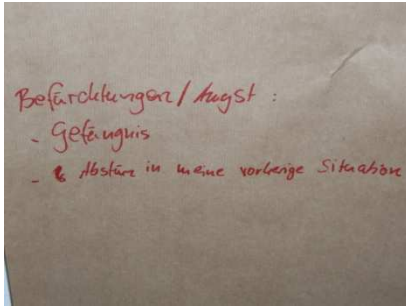 Befürchtungen / Angst :
- Gefängnis
- Absturz in meine vorherige Situation